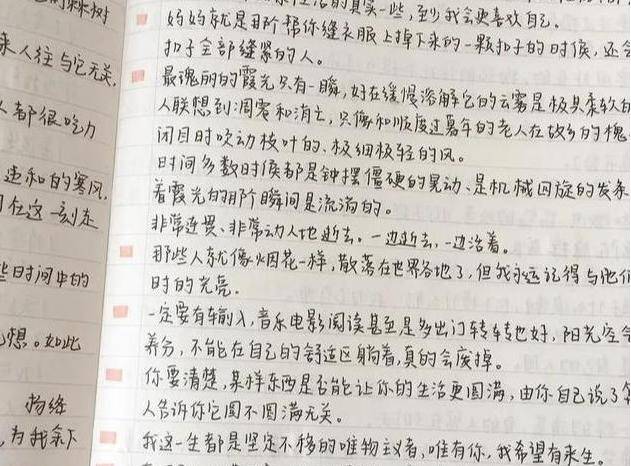 的林树
来人往与它无关,
人都很吃力
违和的寒风,
些时间中的
想。如此
物缘
,为我余下
活的真实一些,至少我会更喜欢自己。
妈妈就是那个帮你缝衣服上掉下来的一颗扣子的时候,还会
扣子全部缝紧的人。
最瑰丽的霞光只有一瞬,好在缓慢溶解它的云雾是极其柔软的
人联想到凋零和消亡,只像和顺度过暮年的老人在故乡的槐
闭目时吹动枝叶的、极细极轻的风。
时间多数时候都是钟摆僵硬的晃动、是机械回旋的发条
着霞光的那个瞬间是流淌的。
非常连畏、非常动人地逝去。一边逝去,一边活着。
那些人就像烟花一样,散落在世界各地了,但我永远记得与他们
时的光亮。
一定要有输入,音乐电影阅读甚至是多出门转转也好,阳光空气
养分,不能在自己的舒适区躺着,真的会废掉。
你要清楚,某样东西是否能让你的生活更圆满,由你自己说了算
人告诉你它圆不圆满无关。
我这一生都是坚定不移的唯物主义者,唯有你,我希望有来生。